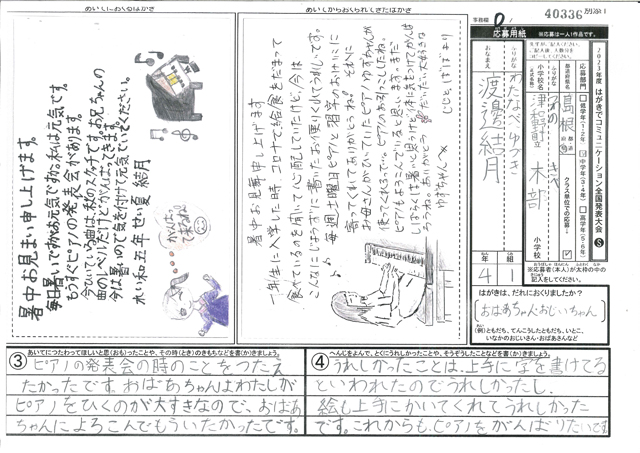 めいてにおくるはがき
暑中お見まい申し上げます。
毎日暑いですがお元気ですか。私は元気です。
もうすぐピアノの発表会があります。
今ひいている曲は、秋のスケッチです。お兄ちゃんの
曲のレベルだけどがんばってきます。
今は暑いので気を付けて元気でいてください。
れい和五年せい夏 結月
がんばって来るね
めいてからおくられてきたはがき
暑中お見舞申し上げます
一年生に入学した時、コロナで給食をだまって
食べているのを聞いて心配していたけど、今は
こんなにじょうずに書いたお便りくれてうれしいです。
毎週土曜日ピアノと習字のおけいこに
寄ってくれてありがとうね。それに
お母さんがひいていたピアノゆずちゃんが
使ってくれるって、ピアノもよろこんでいると思います。
ゆずちゃんへ
じじと、ばばより
事務欄
40336
別添1
応募用紙
※応募は一人1作品です。
2023年度 はがきでコミュニケーション全国発表大会
S
ふりがな
わたなべ ゆづき
おなまえ
渡邉結月
応募部門
低学年(1・2年)
中学年(3・4年)
高学年(5・6年)
都道府県名
島根
クラス単位での応募
ふりがな
つわの きべ
小学校名
木部
小学校
年
4
組
1
※応募者(本人)が太枠の中の記入をしてください。
はがきは、だれにおくりましたか?
(おばあちゃん、おじいちゃん)
(例)ともだち、てんこうしたともだち、いとこ、
いなかのおじいさん・おばあさんなど
③ あいてにつたわってほしいと思(おも)ったことや、その時(とき)のきもちなどを書(か)きましょう。
ピアノの発表会の時のことをつたえ
たかったです。おばあちゃんはわたしが
ピアノをひくのが大すきなので、おばあ
ちゃんによろこんでもらいたかったです。
④ へんじをよんで、とくにうれしかったことや、そうぞうしたことなどを書(か)きましょう。
うれしかったことは、上手に字を書けてる
といわれたのでうれしかったし、
絵も上手にかいてくれてうれしかった
です。これからも、ピアノをがんばりたいです。